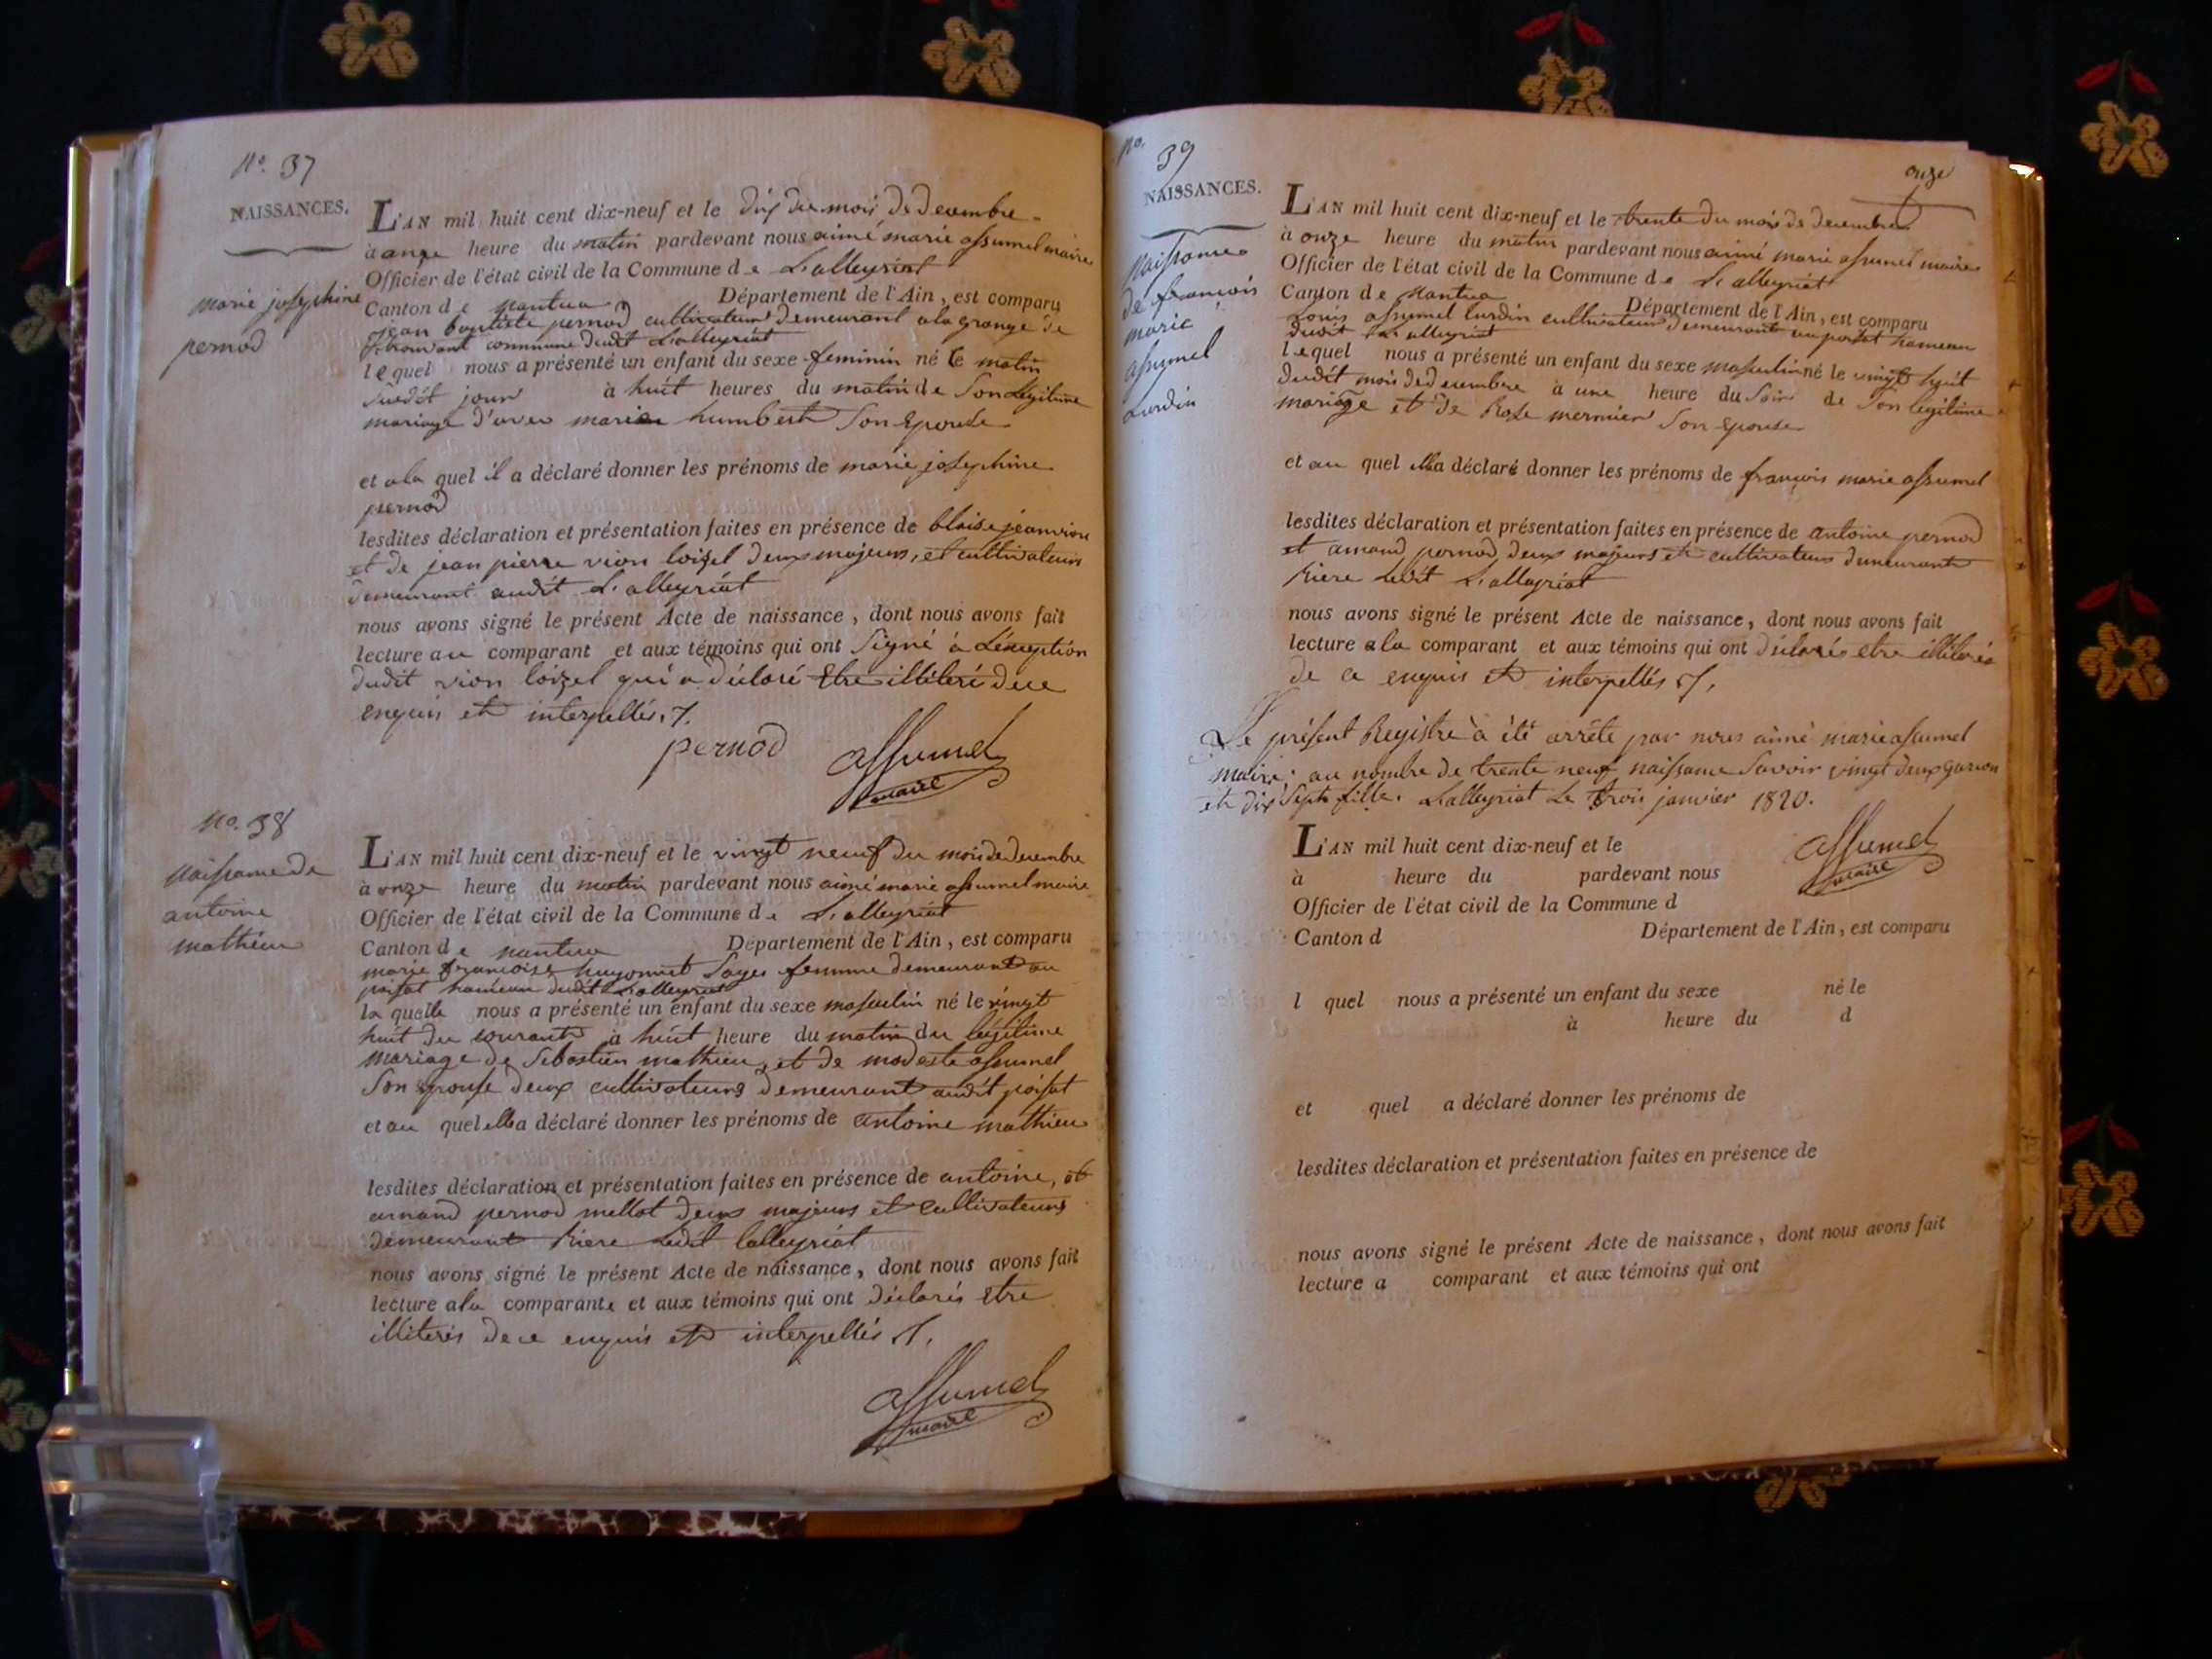 No. 37
NAISSANCES.
marie josephine
pernod
L'AN mil huit cent dix-neuf et le dix du mois de decembre
à onze heure du matin pardevant nous aimé marie assumel maire
Officier de l'état civil de la Commune de L'alleyriat
Canton de nantua Département de l'Ain, est comparu
jean baptiste pernod cultivateur demeurant a la grange de
commune dudit L'alleyriat
lequel nous a présenté un enfant du sexe feminin né le matin
susdit jour à huit heures du matin de Son légitime
mariage d'avec marie humbert Son Epouse
et a la quel il a déclaré donner les prénoms de marie josephine
pernod
lesdites déclaration et présentation faites en présence de blaise
et de jean pierre vion loizel deux majeurs, et cultivateurs
demeurant audit L'alleyriat
nous avons signé le présent Acte de naissance, dont nous avons fait
lecture au comparant et aux témoins qui ont Signé à L'éxception
dudit vion loizel qui a déclaré Etre illiteré de ce
enquis et interpellés.
pernod assumel
maire
No. 38
Naissance de
antoine
mathieu
L'AN mil huit cent dix-neuf et le vingt neuf du mois de decembre
à onze heure du matin pardevant nous aimé marie assumel maire
Officier de l'état civil de la Commune de L'alleyriat
Canton de nantua Département de l'Ain, est comparu
marie françoise hugonnet Sage femme demeurant au
poisat hameau dudit L'alleyriat
la quelle nous a présenté un enfant du sexe masculin né le vingt
huit du courant à huit heure du matin du légitime
mariage de Sebastien mathieu, et de modeste assumel
Son Epouse deux cultivateurs demeurant audit poisat
et au quel ella a déclaré donner les prénoms de antoine mathieu
lesdites déclaration et présentation faites en présence de antoine, et
armand pernod mellot deux majeurs et cultivateurs
demeurant Riere Ledit lalleyriat
nous avons signé le présent Acte de naissance, dont nous avons fait
lecture a la comparante et aux témoins qui ont déclarés etre
illiterés de ce enquis et interpellés
assumel
maire
No. 39
onze
NAISSANCES.
Naissance
de françois
marie
assumel
Lurdin
L'AN mil huit cent dix-neuf et le trente du mois de decembre
à onze heure du matin pardevant nous aimé marie assumel maire
Officier de l'état civil de la Commune de L'alleyriat
Canton de Nantua Département de l'Ain, est comparu
Louis assumel lurdin cultivateur demeurant au poisat hameau
dudit L'alleyriat
lequel nous a présenté un enfant du sexe masculin né le vingt huit
dudit mois de decembre à une heure du Soir de Son légitime
mariage et de Rose mermier Son Epouse
et au quel ella a déclaré donner les prénoms de françois marie assumel
lesdites déclaration et présentation faites en présence de antoine pernod
et armand pernod deux majeurs et cultivateurs demeurant
Riere Ledit L'alleyriat
nous avons signé le présent Acte de naissance, dont nous avons fait
lecture a la comparant et aux témoins qui ont déclarés etre illiterés
de ce enquis et interpellés
Le présent Registre à été arrêté par nous aimé marie assumel
maire au nombre de trente neuf naissance Savoir vingt deux garcon
et dix Sept fille. Lalleyriat Le trois janvier 1820.
assumel
maire
L'AN mil huit cent dix-neuf et le
à heure du pardevant nous
Officier de l'état civil de la Commune d
Canton d Département de l'Ain, est comparu
l quel nous a présenté un enfant du sexe né le
à heure du d
et quel a déclaré donner les prénoms de
lesdites déclaration et présentation faites en présence de
nous avons signé le présent Acte de naissance, dont nous avons fait
lecture a comparant et aux témoins qui ont